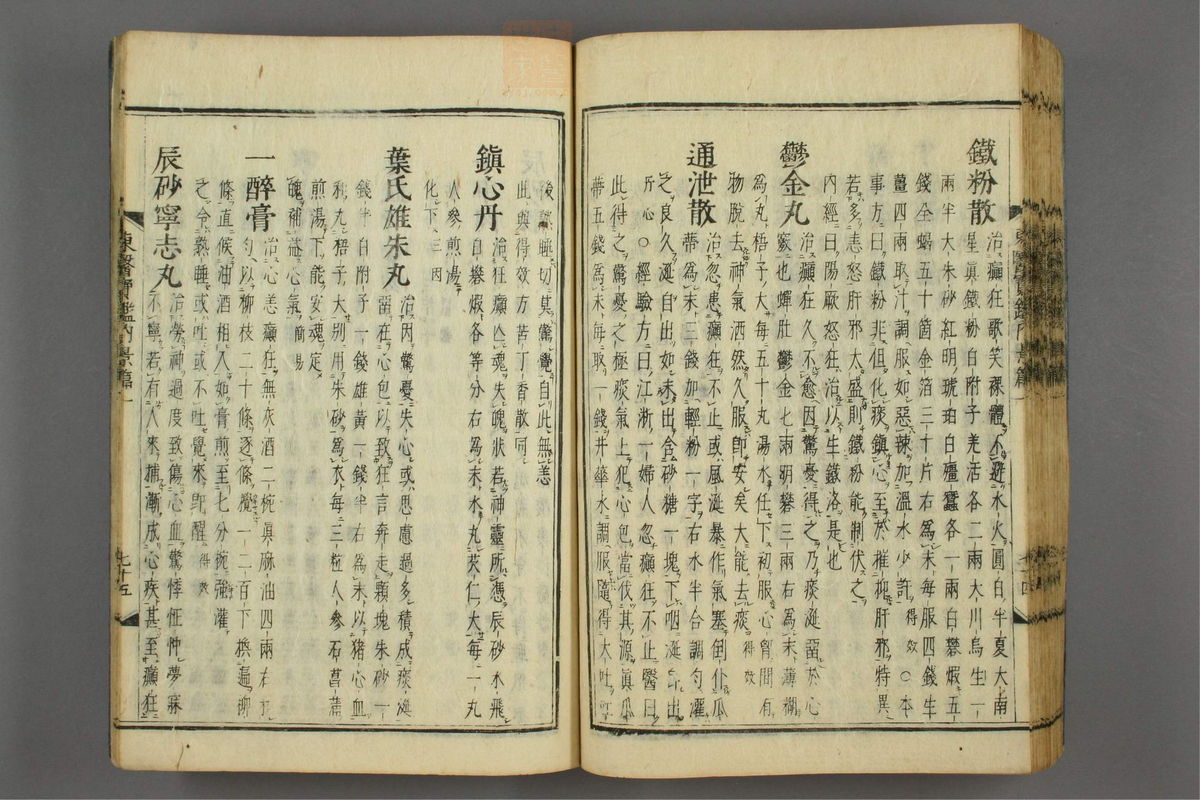 鐵粉散 治癲狂歌笑裸體不避水火圓白半夏大南
星眞鐵粉白附子羌活各二兩大川烏生一
兩半大朱砂紅明琥珀白殭蠶各一兩白礬煆五
錢全蝎五十箇金箔三十片右爲末每服四錢生
薑四兩取汁調服如惡辣加溫水少許得效○本
事方曰鐵粉非但化痰鎭心至於摧抑肝邪特異
若多恚怒肝邪太盛則鐵粉能制伏之
內經曰陽厥怒狂治以生鐵洛是也
鬱金丸 治癲狂久不愈因驚憂得之乃痰涎留於心
竅也蟬肚鬱金七兩明礬三兩右爲末薄糊
爲丸梧子大每五十丸湯水任下初服心胷間有
物脫去神氣洒然久服卽安矣大能去痰得效
通泄散 治忽患癲狂不止或風涎暴作氣塞倒仆瓜
蔕爲末三錢加輕粉一字右水半合調勻灌
之良久涎自出如未出含砂糖一塊下咽涎卽出
斤心○經驗方曰江浙一婦人忽癲狂不止醫曰
此得之驚憂之極痰氣上犯心包當伐其源眞瓜
蔕五錢爲末每取一錢井華水調服隨得大吐吐
後熟睡切莫驚覺自此無恙
此與得效方苦丁香散同
鎭心丹 治狂癲亾魂失魄狀若神靈所憑辰砂水飛
白礬煆各等分右爲末水丸芡仁大每一丸
人參煎湯
化下三因
葉氏雄朱丸 治因驚憂失心或思慮過多積成痰涎
留在心包以致狂言奔走顆塊朱砂一
錢半白附子一錢雄黃一錢半右爲末以猪心血
和丸梧子大別用朱砂爲衣每三粒人參石菖蒲
煎湯下能安魂定
魄補益心氣簡易
一醉膏 治心恙癲狂無灰酒二椀眞麻油四兩右和
勻以柳枝二十條逐條攪一二百下換遍柳
條直候油酒相入如膏煎至七分椀强灌
之令熟睡或吐或不吐覺來卽醒得效
辰砂寧志丸 治勞神過度致傷心血驚悸怔忡夢寐
不寧若有人來捕漸成心疾甚至癲狂
東醫寶鑑內景篇一
七十五